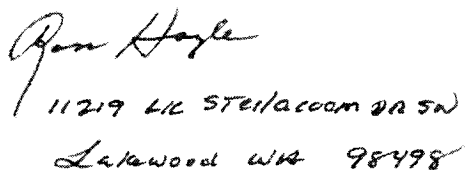 Ron Hoyle
11219 LK STeilacoom DR SW
Lakewood WA 98498